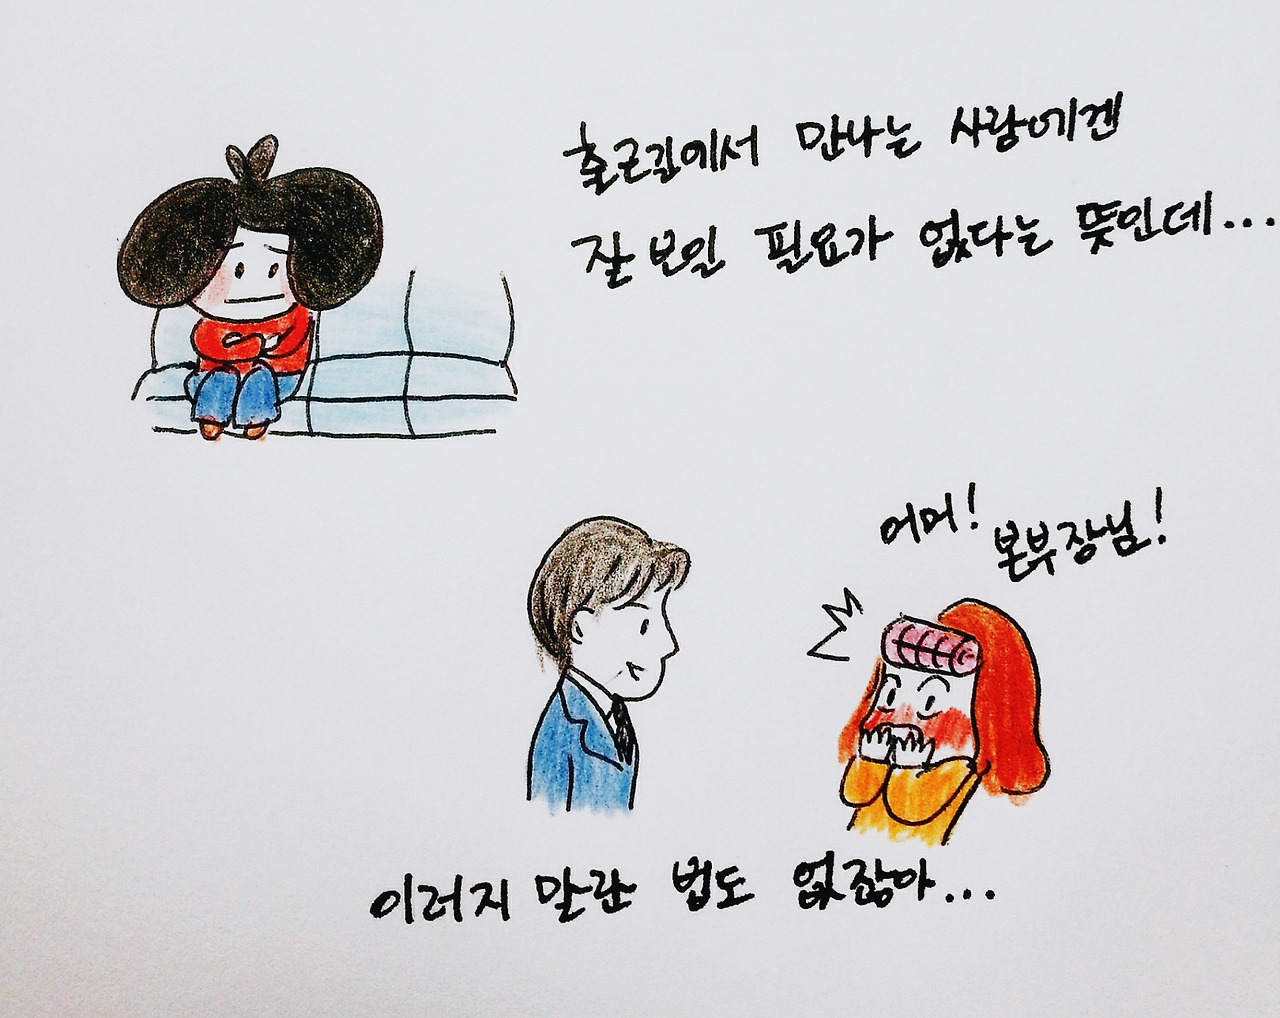 출근길에서 만나는 사람에겐
잘 보일 필요가 없다는 뜻인데...
어머!
본부장님!
이러지 말란 법도 없잖아...